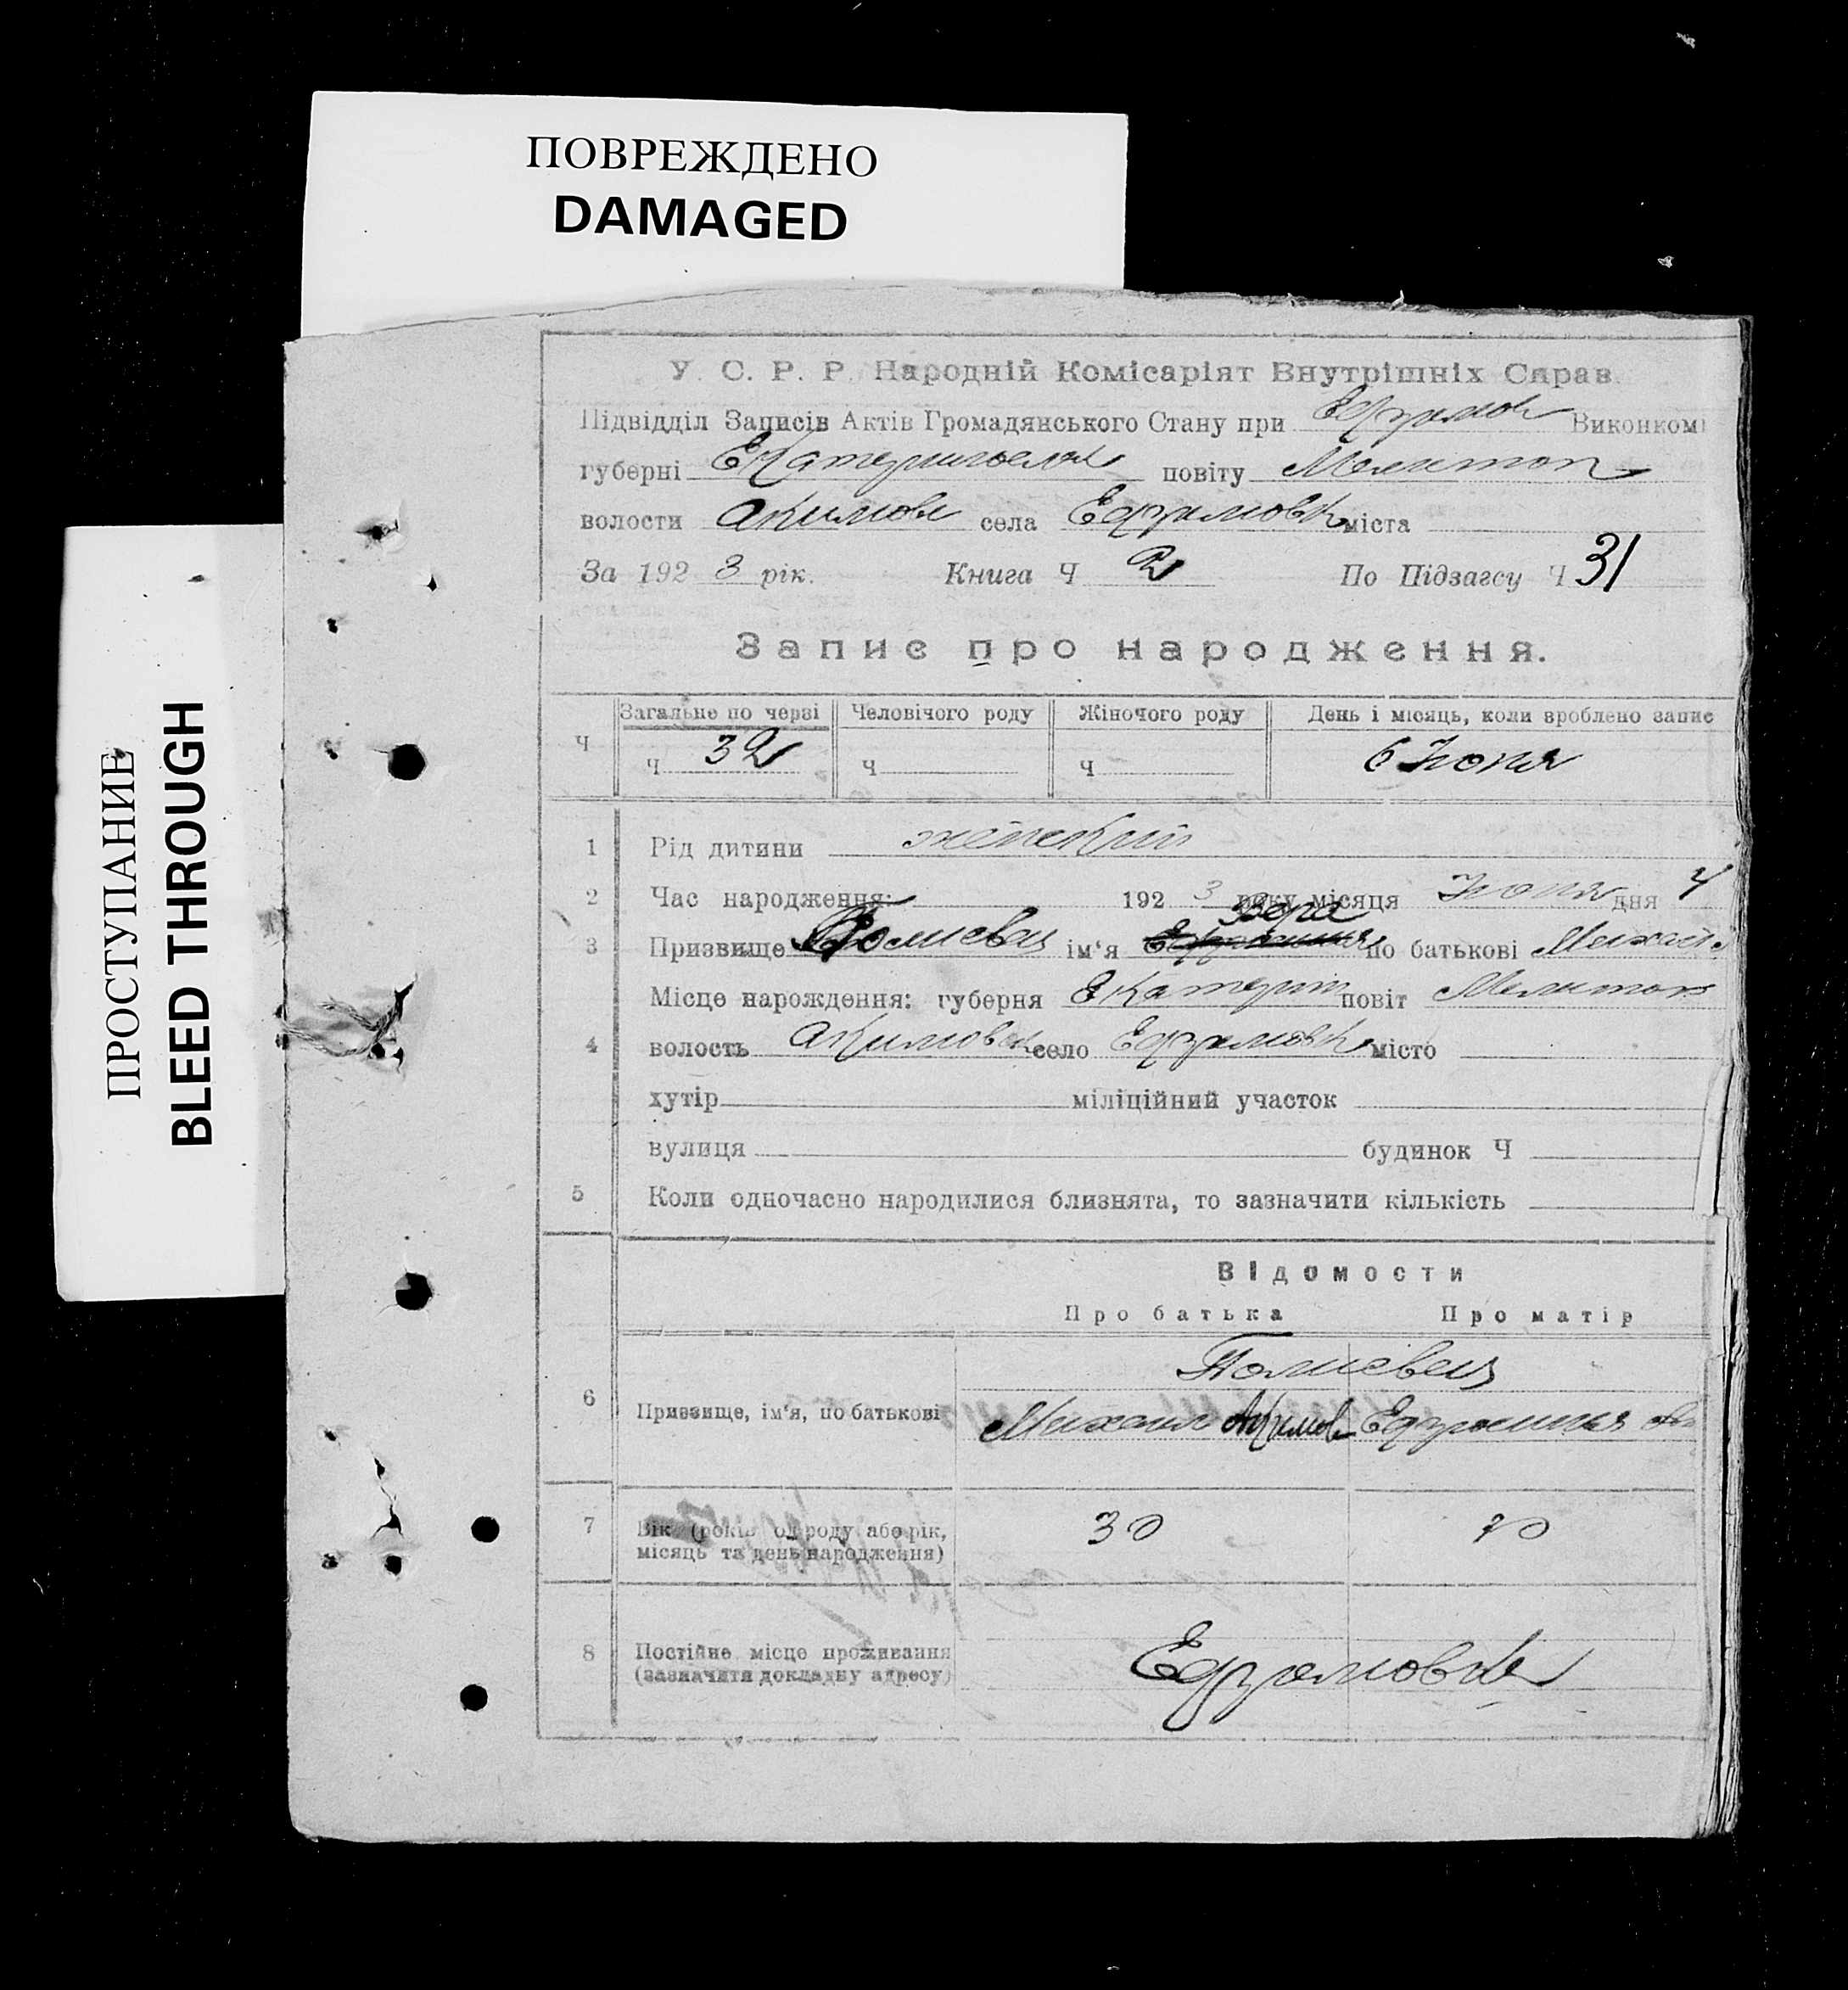 ПОВРЕЖДЕНО
DAMAGED
ПРОСТУПАНИЕ
BLEED THROUGH
У. С. Р. Р. Народній Комісаріят Внутрішніх Справ.
Підвідділ Записів Актів Громадянського Стану при Ефремов Виконкомі
губерні Екатеринослав повіту Мелитоп
волости Акимов села Ефремовк міста
За 192 3 рік. Книга Ч 2 По Підзагсу Ч 31
Запис про народження.
Загальне по черзі Человічого роду Жіночого роду День і місяць, коли зроблено запис
Ч ч 32 ч ч 6 Июня
1 Рід дитини женский
2 Час народження: 192 3 року місяця Июня дня 4
Вера
3 Призвище ім‘я по батькові Михайл
Місце нарождення: губерня Екатерин повіт Мелитоп
4 волость Акимовск село Ефремовк місто
хутір міліційний участок
вулиця будинок Ч
5 Коли одночасно народилися близнята, то зазначити кількість
Відомости
Про батька Про матір
6 Призвище, ім‘я, по батькові
Михаил Ефросиния
7 Вік (років од роду або рік, місяць та день народження) 30 20
8 Постійне місце проживання
(зазначити докладну адресу) Ефремовка